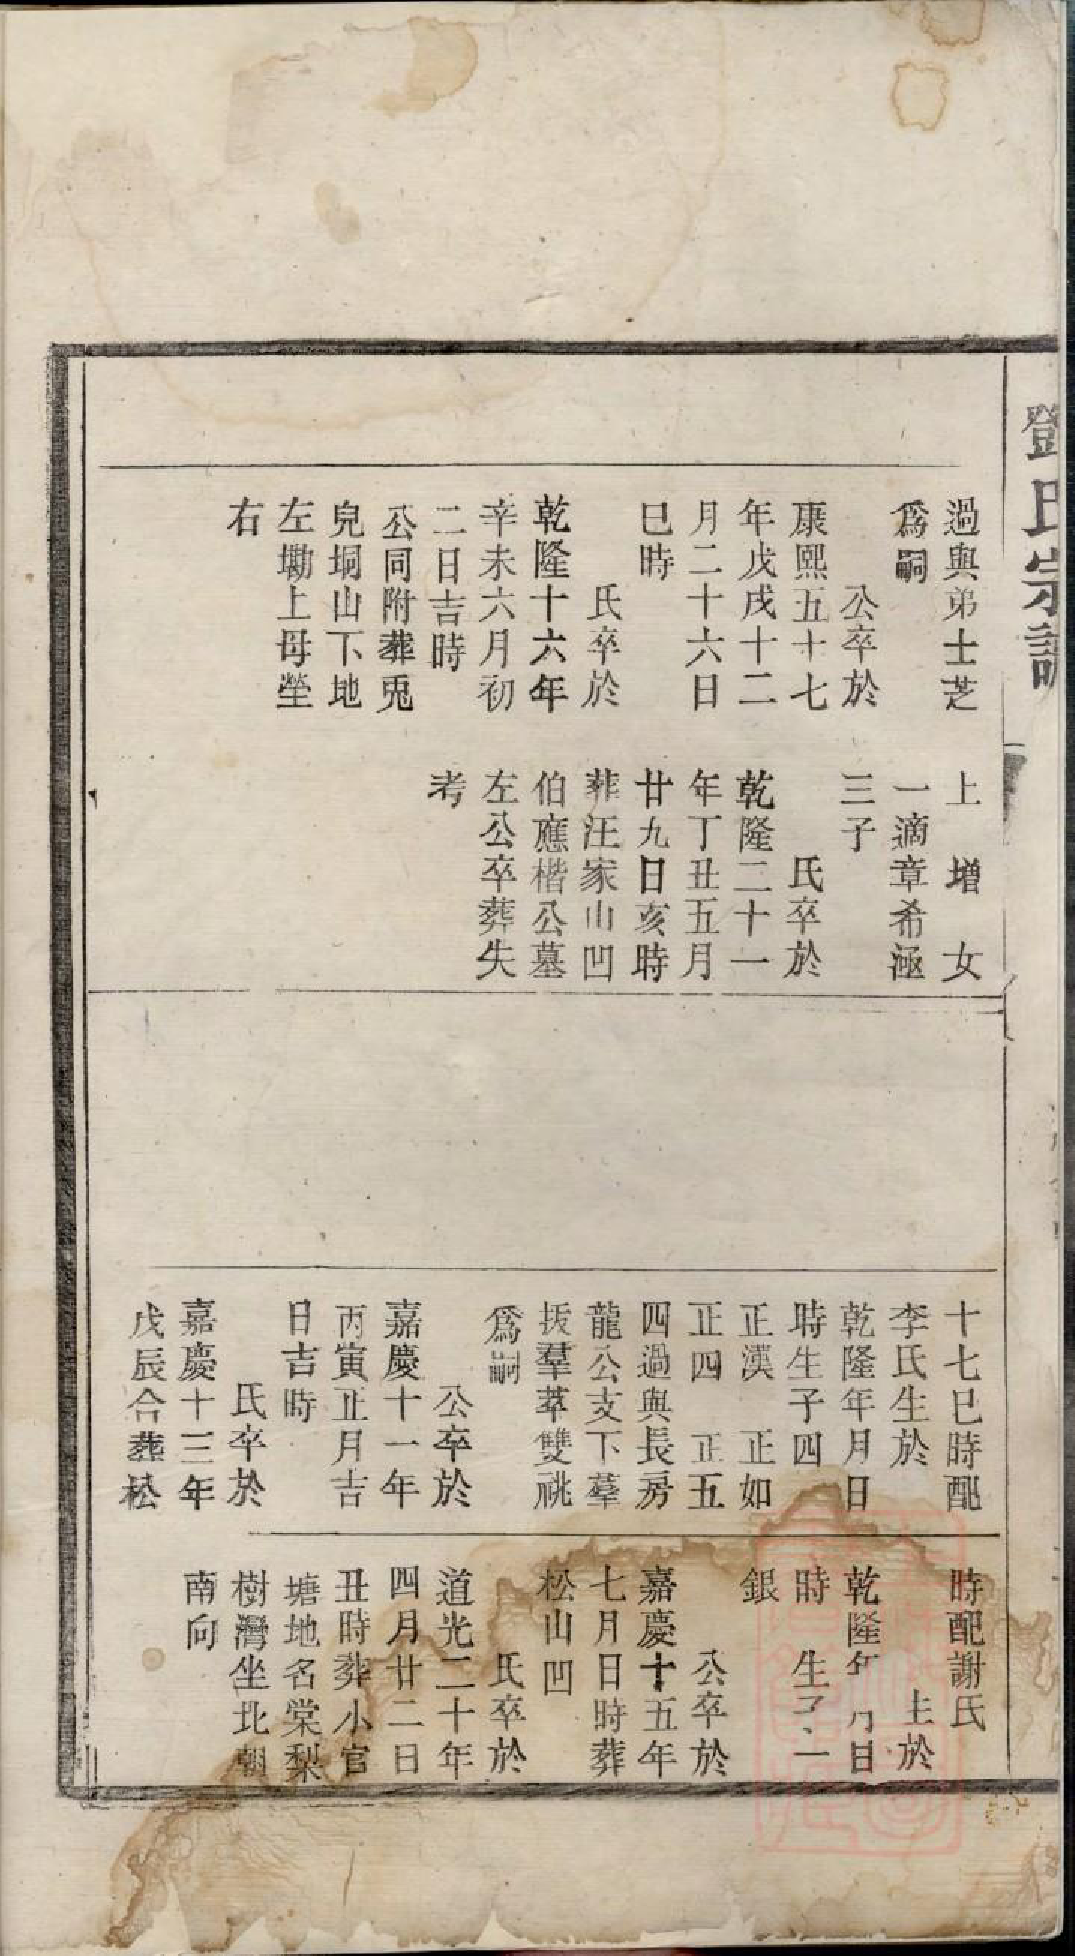 鄧氏宗譜
過與弟士芝
爲嗣
公卒於
康熙五十七
年戊戌十二
月二十六日
巳時
氏卒於
乾隆十六年
辛未六月初
二日吉時
公同附葬兎
兒垌山下地
左墈上母塋
右
上 增 女
一適章希極
三子
氏卒於
乾隆二十一
年丁丑五月
廿九日亥時
葬汪家山凹
伯應楷公墓
左公卒葬失
考
十七巳時配
李氏生於
乾隆年月日
時生子四
正漢 正如
正四 正五
四過與長房
龍公支下羣
拔羣萃雙祧
爲嗣
公卒於
嘉慶十一年
丙寅正月吉
日吉時
氏卒於
嘉慶十三年
戊辰合葬松
時配謝氏
生於
乾隆年 月日
時 生子一
銀
公卒於
嘉慶十五年
七月日時葬
松山凹
氏卒於
道光二十年
四月廿二日
丑時葬小官
塘地名棠梨
樹灣坐北朝
南向